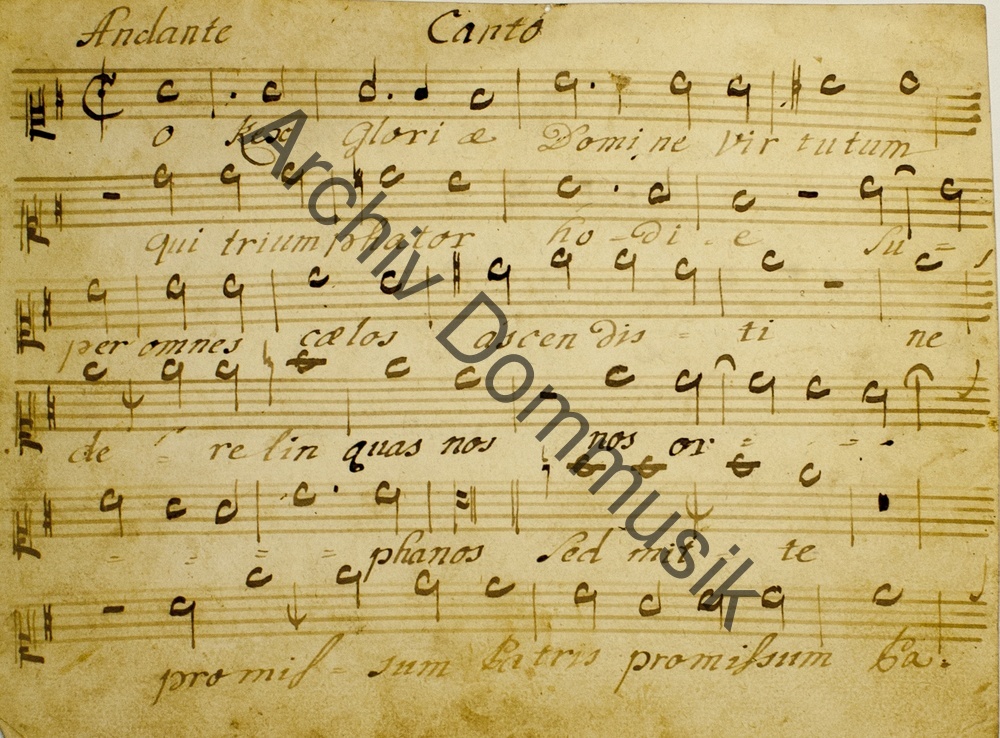 Andante Canto
O Rex Gloriæ Domine Virtutum
qui triumphator ho - di - e Su =
per omnes cælos ascendis = ti ne
de = relin quas nos nos or = = -
= = = = phanos Sed mit - te
promis = sum Patris promissum Pa.
Archiv Dommusik